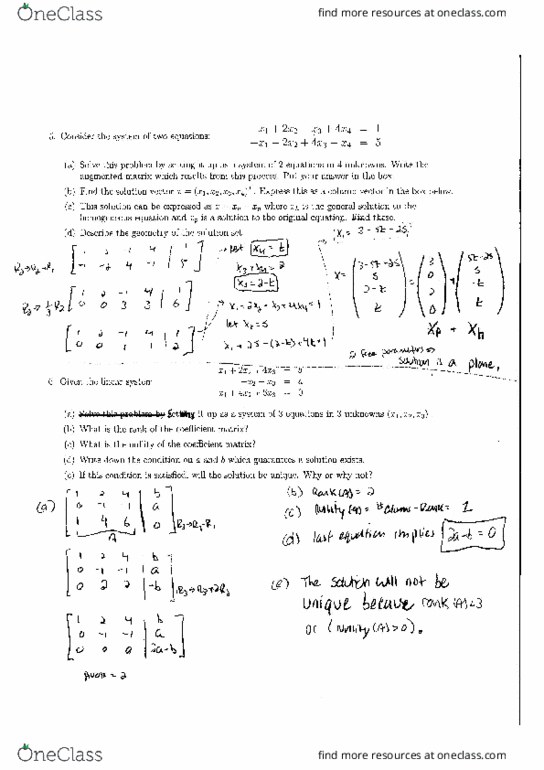 OneClass
find more resources at oneclass.com
x₁ + 2x₂ x₃ + 4x₄ = 1
5. Consider the system of two equations:
-x₁ - 2x₂ + 4x₃ - x₄ = 5
(a) Solve this problem by setting it up as a system of 2 equations in 4 unknowns. Write the
augmented matrix which results from this process. Put your answer in the box.
(b) Find the solution vector x = (x₁, x₂, x₃, x₄)ᵀ. Express this as a column vector in the box below.
(c) This solution can be expressed as where is the general solution to the
homogeneous equation and is a solution to the original equation. Find these.
(d) Describe the geometry of the solution set
[1 2 -1 4 | 1]
[-1 -2 4 -1 | 5]
let x₄ = t
x₃ + x₄ = 2
x₃ = 2 - t
x₁ = 3 - 5t - 2s
[1 2 -1 4 | 1]
[0 0 3 3 | 6]
let x₂ = s
x₁ + 2s - (2-t) + 4t = 1
[1 2 -1 4 | 1]
[0 0 1 1 | 2]
x = (3-5t-2s, s, 2-t, t) = (3, 0, 2, 0)
Xp + Xh
2 free parameters ⇒
solution is a plane.
6. Given the linear system
-x₂ - x₃ = a
(a) Solve this problem by Setting it up as a system of 3 equations in 3 unknowns (x₁, x₂, x₃)
(b) What is the rank of the coefficient matrix?
(c) What is the nullity of the coefficient matrix?
(d) Write down the condition on a and b which guarantees a solution exists.
(e) If this condition is satisfied, will the solution be unique. Why or why not?
(a)
[1 2 4 | b]
[0 -1 -1 | a]
[1 4 6 | 0] R₃→R₃-R₁
A
[1 2 4 | b]
[0 -1 -1 | a]
[0 2 2 | -b]
[1 2 4 | b]
[0 -1 -1 | a]
[0 0 0 | 2a-b]
(b) Rank(A) = 2
(c) Nullity(A) = # Columns - Rank = 1
(d) last equation implies 2a-b = 0
(e) The solution will not be
unique because rank(A)<3
or (Nullity(A)>0).
OneClass
find more resources at oneclass.com